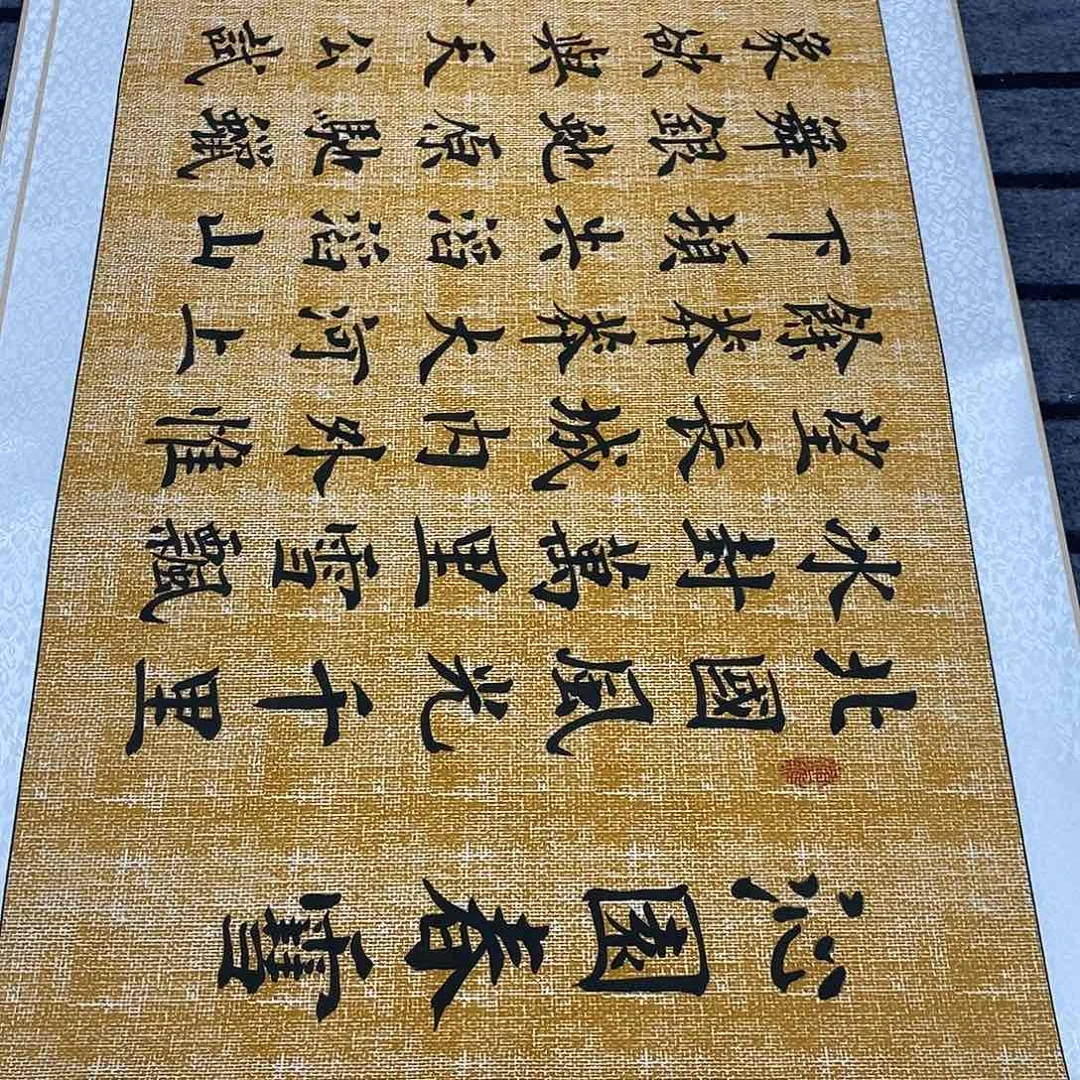 沁園春雪
北國風光千里
冰封萬里雪飄
望長城内外惟
餘莽莽大河上
下頓失滔滔山
舞銀蛇原馳蠟
象欲與天公試